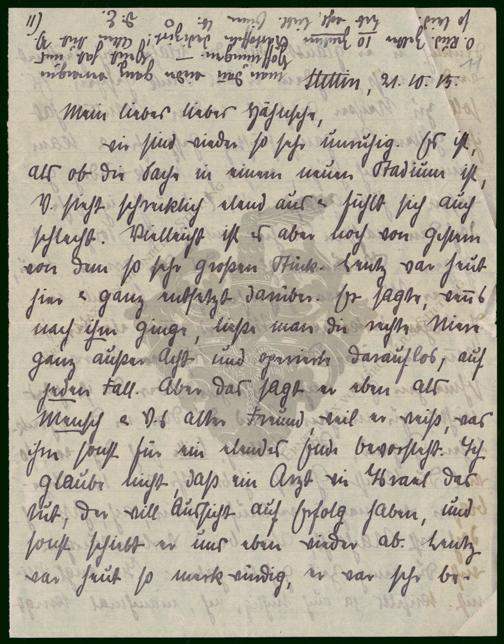 Stettin, 21.10.15.
Mein lieber lieber
wir sind wieder so sehr unruhig. Es ist,
als ob die Sache in einem neuen Stadium ist,
V. sieht schrecklich elend aus & fühlt sich auch
schlecht. Vielleicht ist es aber noch von gestern
von dem so sehr großen Stück. Lentz war heut
hier & ganz entsetzt darüber. Er sagte, wenns
nach ihm ginge, ließe man die rechte Niere
ganz außer Acht und operierte darauflos, auf
jeden Fall. Aber das sagt er eben als
Mensch & V.s alter Freund, weil er weiß, was
ihm sonst für ein elendes Ende bevorsteht. Ich
glaube nicht, daß ein Arzt wie Israel das
tut, der will Aussicht auf Erfolg haben, und
sonst schiebt er uns eben wieder ab. Lentz
war heut so merkwürdig, er war sehr be-